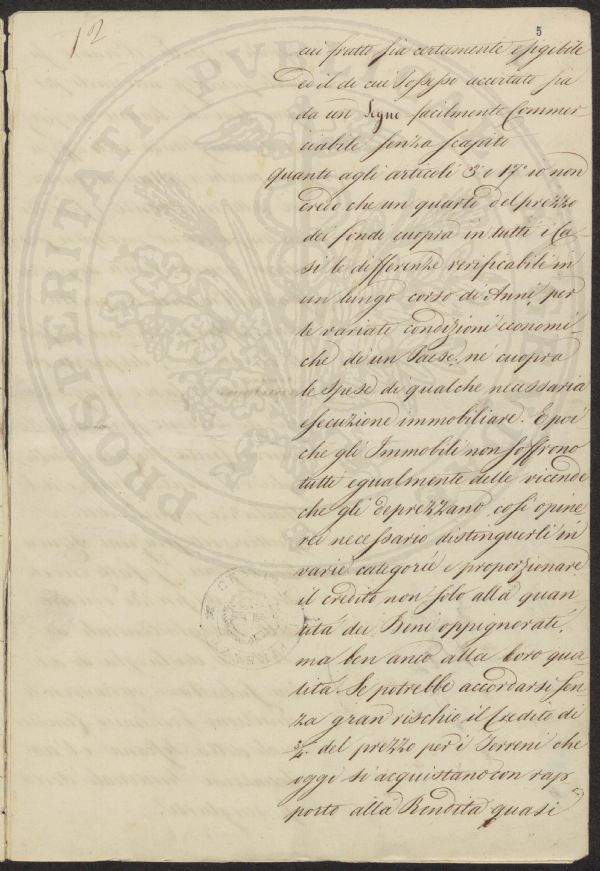 12
5
cui frutto sia certamente esigibile
ed il di cui Possesso accertato sia
da un Segno facilmente Commer
ciabile senza scapito
quanto agli articoli 3° e 17° io non
credo che un quarto del prezzo
del fondo cuopra in tutti i Ca-
si le differenze verificabili in
un lungo corso di Anni, per
le variate condizioni economi-
che di un Paese, né cuopra
le Spese di qualche necessaria
esecuzione immobiliare. E poi
che gli Immobili non soffrono
tutti egualmente delle vicende
che gli deprezzano, così opine
rei necessario distinguerli in
varie categorie e proporzionare
il credito non solo alla quan
tità dei Beni oppignorati,
ma ben anco alla loro qua-
lità. Se potrebbe accordarsi sen
za gran rischio il Credito di
3/4 del prezzo per i Terreni che
oggi si acquistano con rap-
porto alla Rendita quasi
PROSPERITATI PVBL